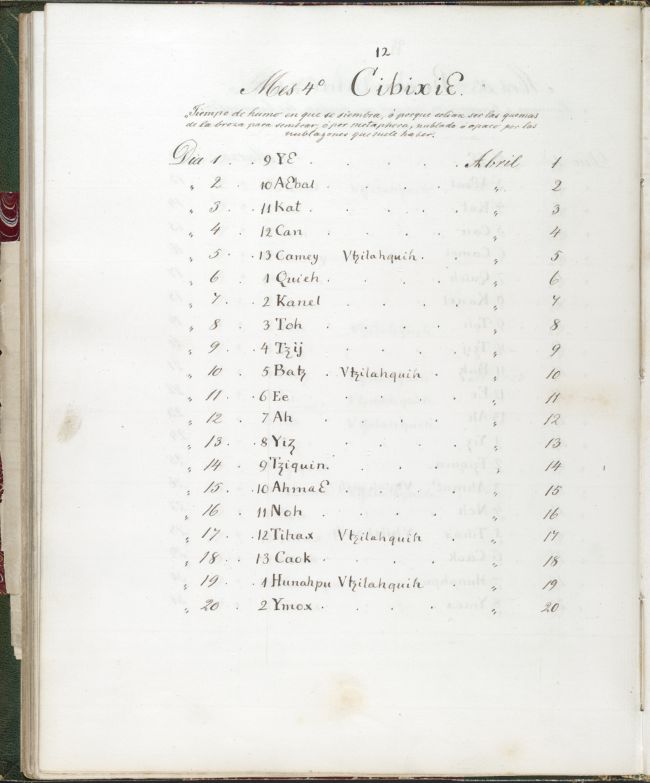 12
Mes 4º CibixiƐ.
Tiempo de humo en que se siembra, ó porque solian ser las quemas
de la broza para sembrar, ó por metaphora, nublado ó opaco, por los
nublazones que suele haber.
Dia 1 . 9 YƐ . . . . Abril 1
„ 2 . 10 AƐbal . . . . „ 2
„ 3 . . 11 Kat . . . . „ 3
„ 4 . 12 Can . . . . „ 4
„ 5 . . 13 Camey Vtzilahquih . . „ 5
„ 6 . 1 Quieh . . . . „ 6
„ 7 . . 2 Kanel . . . . „ 7
„ 8 . 3 Toh . . . . „ 8
„ 9 . . 4 Tzij . . . . „ 9
„ 10 . 5 Batz . Vtzilahquih . . „ 10
„ 11 . . 6 Ee . . . . „ 11
„ 12 . 7 Ah . . . . „ 12
„ 13 . . 8 Yiz . . . . „ 13
„ 14 . 9 Tziquin . . . . „ 14
„ 15 . . 10 AhmaƐ . . . . „ 15
„ 16 . 11 Noh . . . . „ 16
„ 17 . . 12 Tihax Vtzilahquih „ 17
„ 18 . . 13 Caok . . . . „ 18
„ 19 . . 1 Hunahpu Vtzilahquih . „ 19
„ 20 . 2 Ymox . . . . „ 20